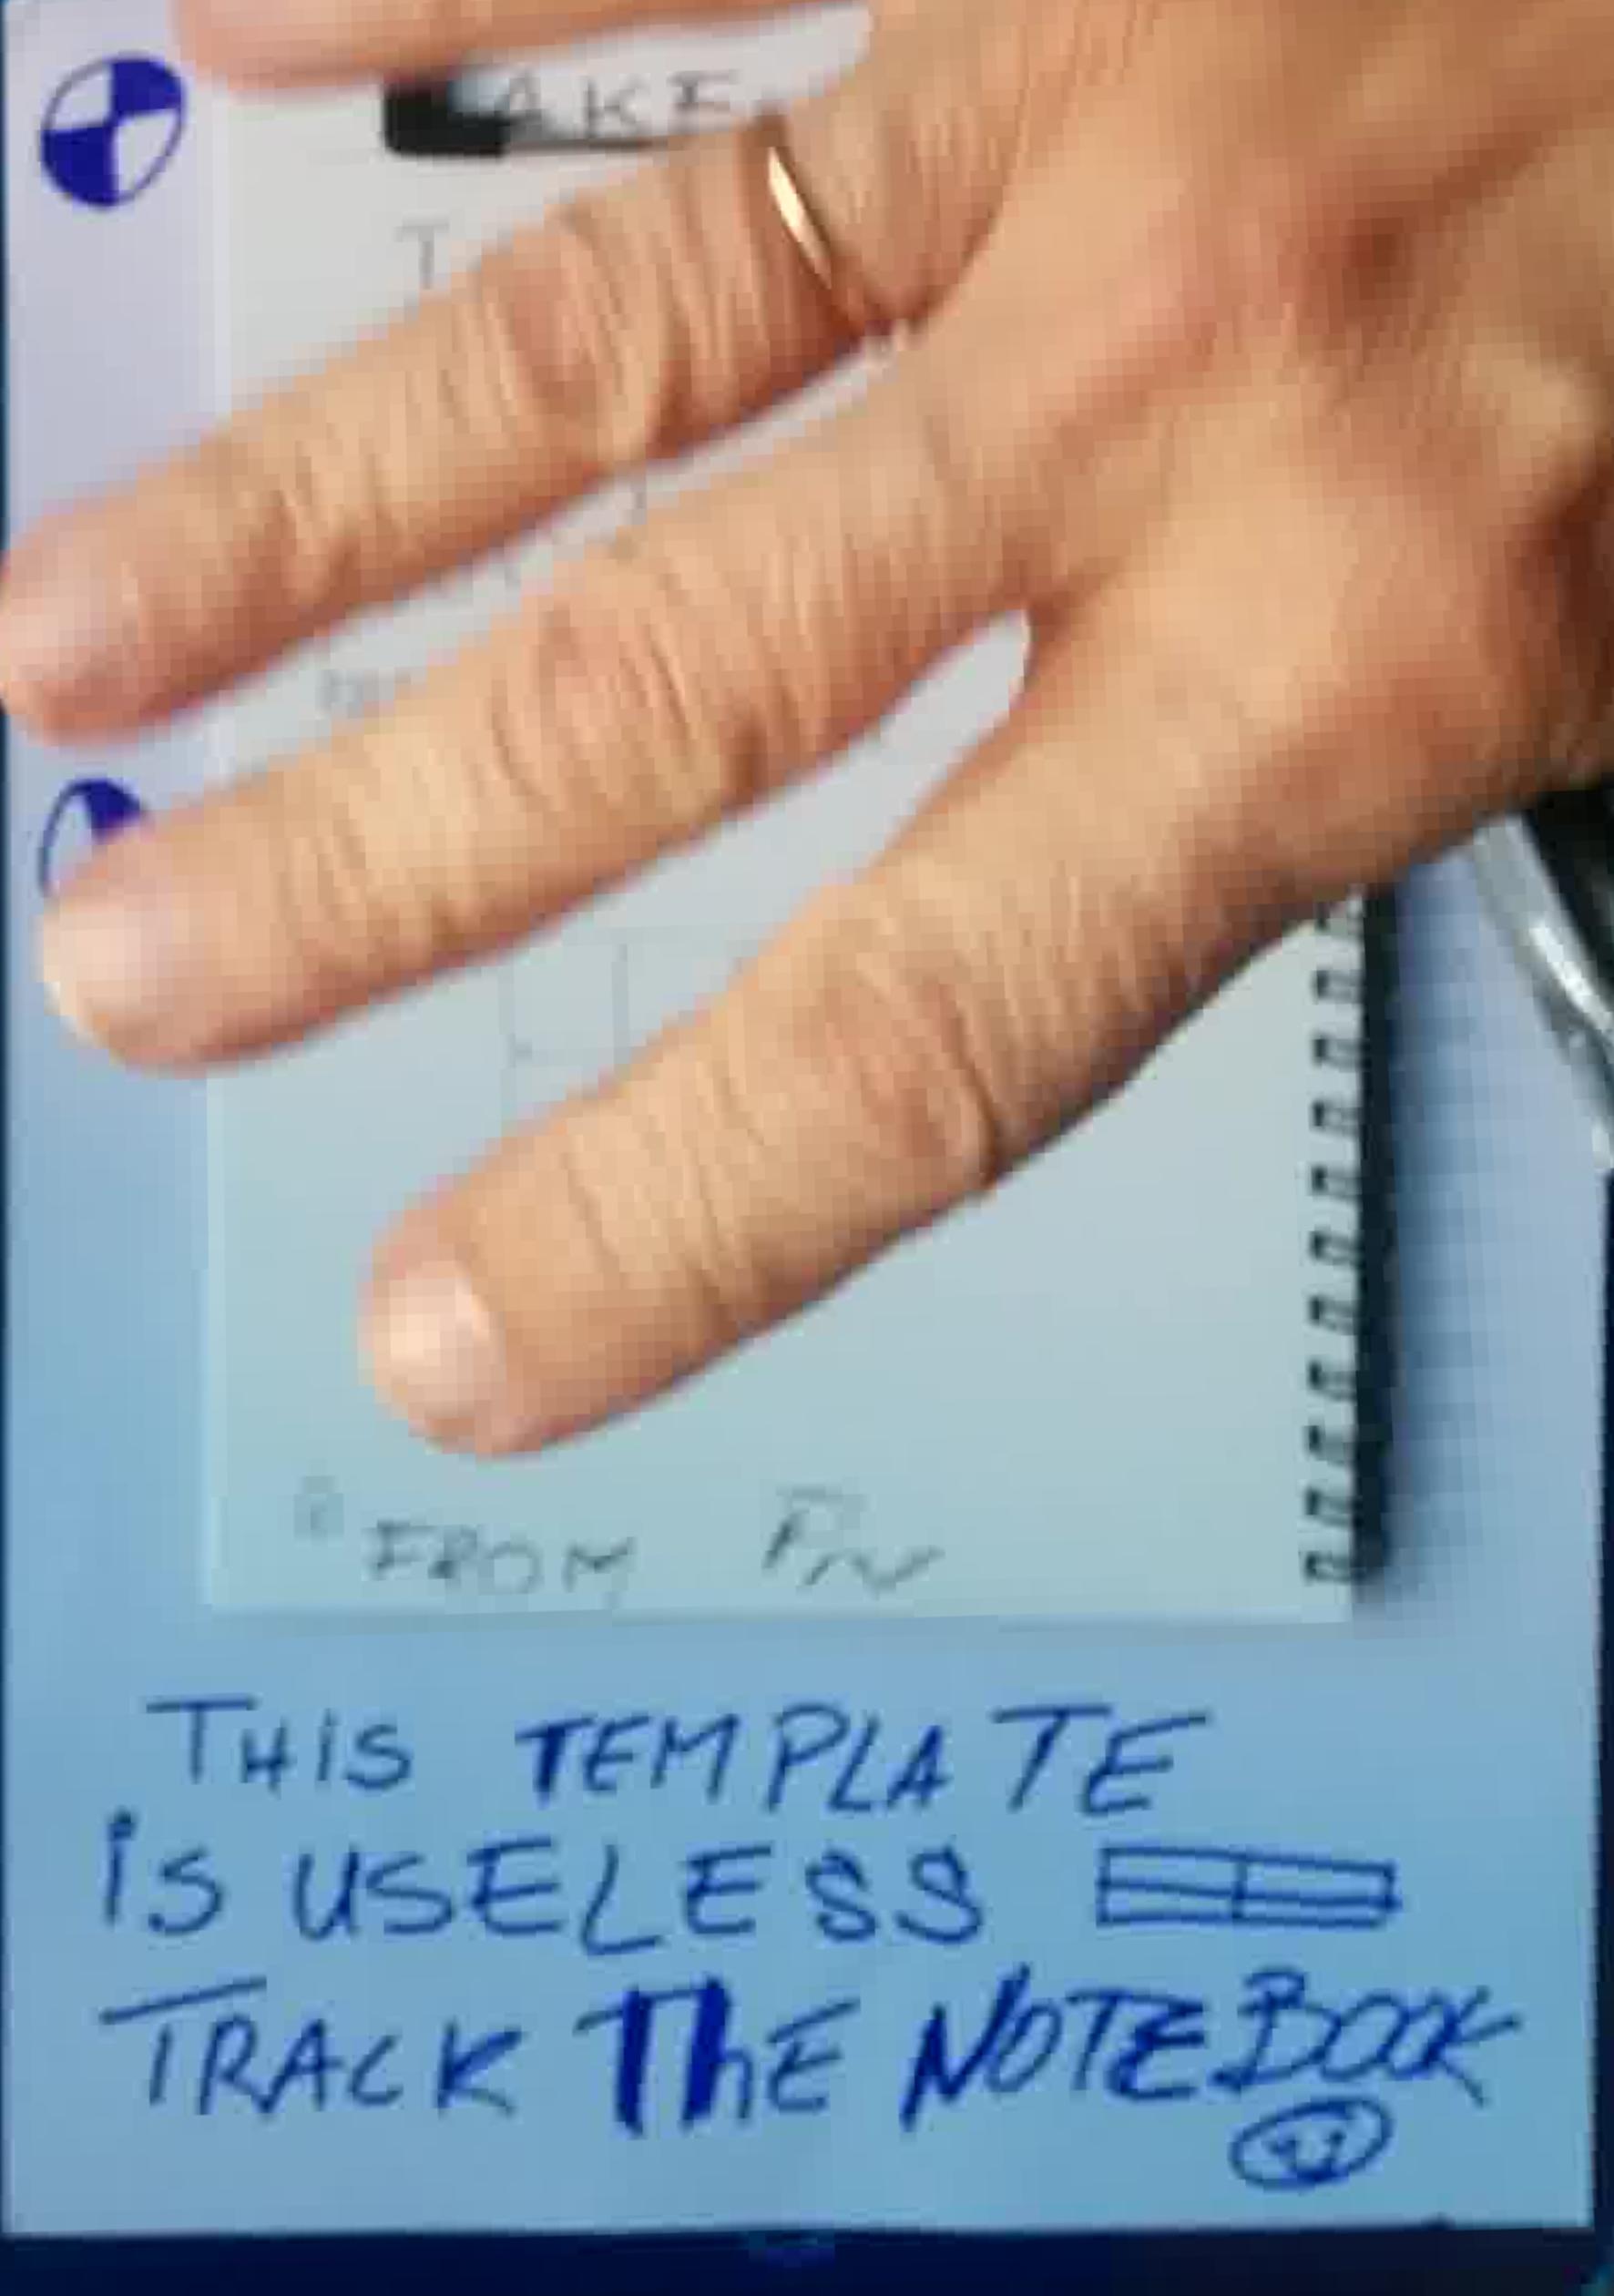 AKE
T
FROM
THIS TEMPLATE
iS USELESS
TRACK ThE NOTEBOOK